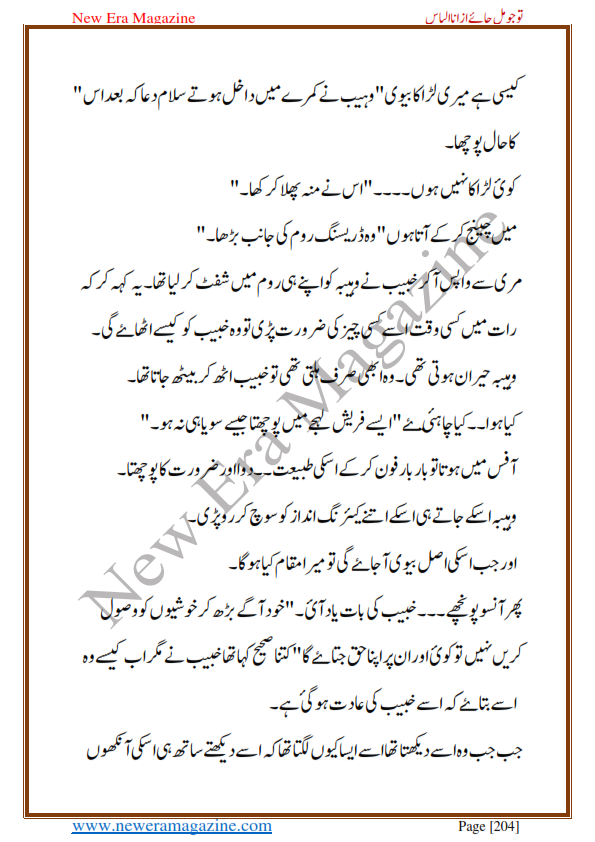 New Era Magazine تو جو مل جائے از انا الیاس
کیسی ہے میری لڑاکا بیوی" وہیب نے کمرے میں داخل ہوتے سلام دعا کہ بعد اس "
کا حال پوچھا۔
کوئ لڑاکا نہیں ہوں۔۔۔۔"اس نے منہ پھلا کر کھا۔"
میں چینج کر کے آتا ہوں" وہ ڈریسنگ روم کی جانب بڑھا۔"
مری سے واپس آ کر خبیب نے وہیبہ کو اپنے ہی روم میں شفٹ کر لیا تھا۔ یہ کہہ کر کہ
رات میں کسی وقت اسے کسی چیز کی ضرورت پڑی تو وہ خبیب کو کیسے اٹھاۓ گی۔
وہیبہ حیران ہوتی تھی۔ وہ ابھی صرف ہلتی تھی تو خبیب اٹھ کر بیٹھ جاتا تھا۔
کیا ہوا۔۔کیا چاہئیے" ایسے فریش لہجے میں پوچھتا جیسے سویا ہی نہ ہو۔"
آفس میں ہوتا تو بار بار فون کر کے اسکی طبیعت۔۔دوا اور ضرورت کا پوچھتا۔
وہیبہ اسکے جاتے ہی اسکے اتنے کیئرنگ انداز کو سوچ کر رو پڑی۔
اور جب اسکی اصل بیوی آ جاۓ گی تو میرا مقام کیا ہو گا۔
پھر آنسو پونچھے۔۔۔خبیب کی بات یاد آئ۔"خود آگے بڑھ کر خوشیوں کو وصول
کریں نہیں تو کوئ اور ان پر اپنا حق جتاۓ گا" کتنا صحیح کہا تھا خبیب نے مگر اب کیسے وہ
اسے بتاۓ کہ اسے خبیب کی عادت ہو گئ ہے۔
جب جب وہ اسے دیکھتا تھا اسے ایسا کیوں لگتا تھا کہ اسے دیکھتے ساتھ ہی اسکی آنکھوں
New Era Magazine
www.neweramagazine.com Page [204]